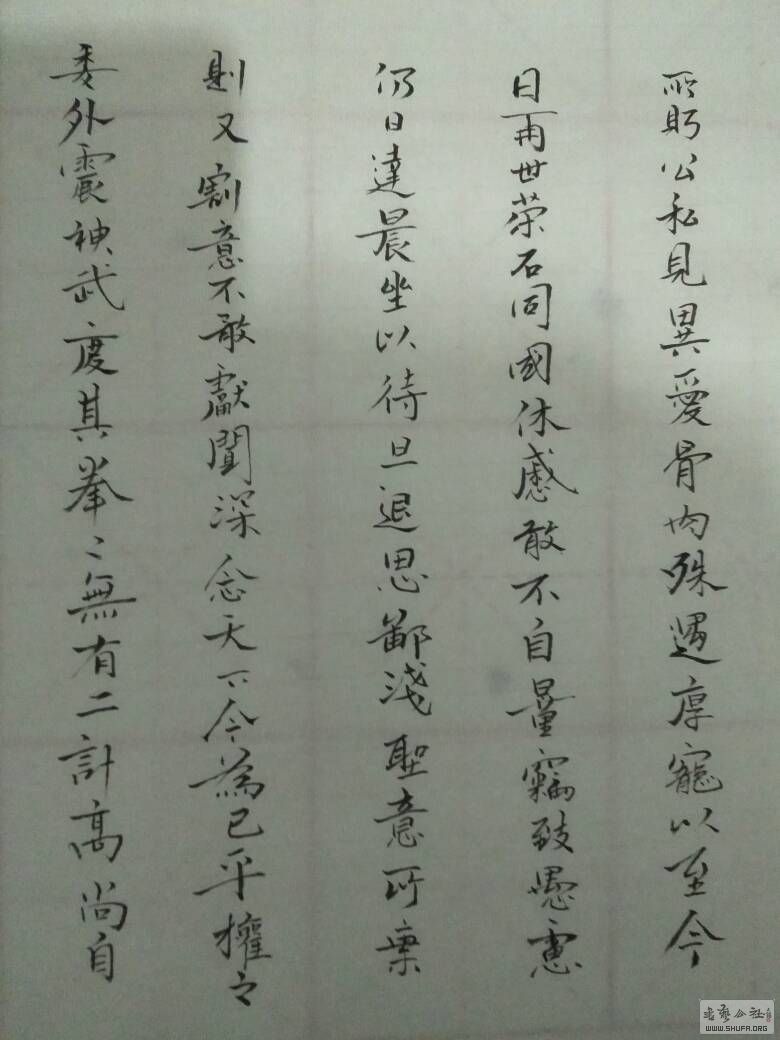 所盻公私見異愛骨肉殊遇厚寵以至今
日再世荣名同國休慼敢不自量竊致愚慮
仍日達晨坐以待旦退思鄙淺聖意所棄
則又割意不敢獻聞深念天下今為已平權之
委外震神武度其拳〻無有二計高尚自
書藝公社
WWW.SHUFA.ORG